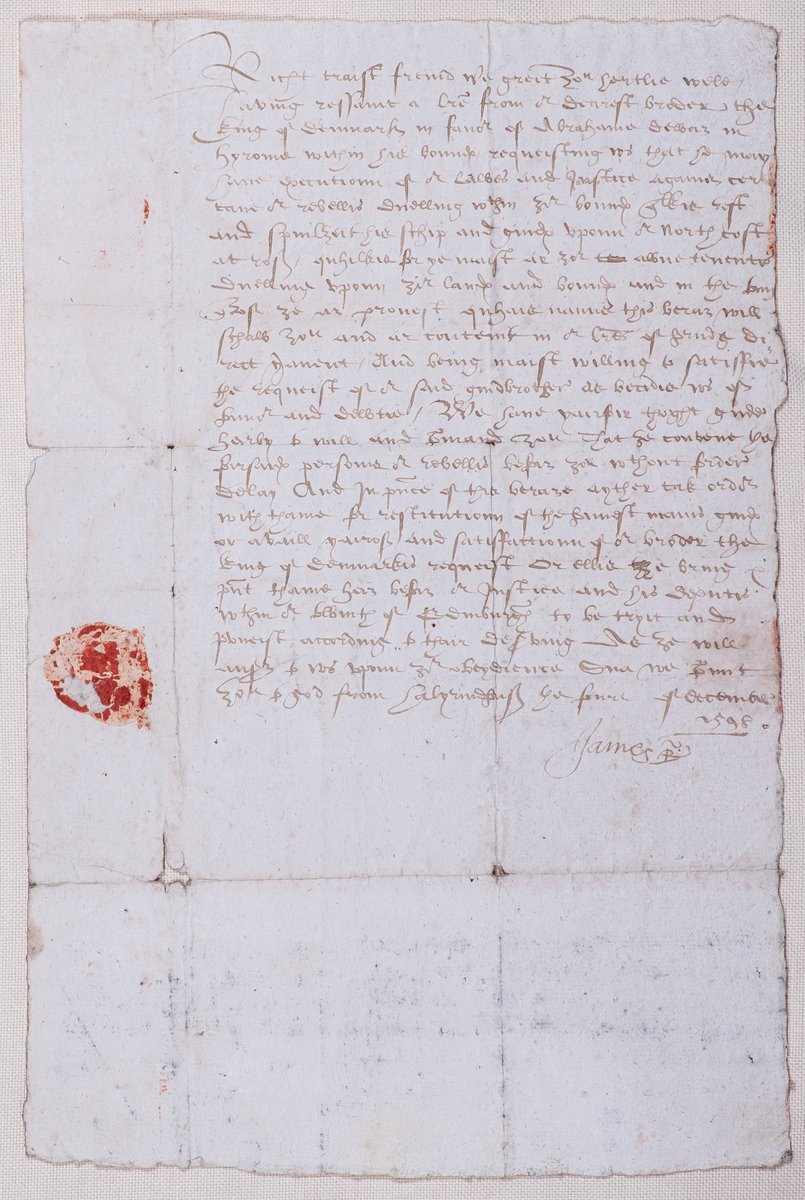 Richt traist freind we greit zow hertlie wele
Having ressavit a lre from or dearest broder the
King of denmark in favor of Abrahame dewar in
within his boundis requeisting ws that he may
have executioun of or Lawes and Justice aganis cer
tane or rebellis duelling wthin zor boundis
and spuilzeit his schip and guidis vpoun or north cost
at ross, quhilkis for ye maist ar zor awne tenentis
duelling vpoun zor landis and boundis and in the
of ze ar provest quhais names this berar will
schaw zow and ar contenit in or lres of horning di
rect yairvpon, And being maist willing to satisfie
the requeist of or said guidbrother as becumis ws of
honor and dewtie, We have yairfoir thocht guid
heirby to will and comand zow That ze convene the
foirsaidis persones or rebellis befoir zow wthout forder
delay And in pnce of this berare ayther tak ordor
with thame for restitutioun of the honest manis guidis
or availl yairof and satisfactioun of or broder the
King of denmarkis requeist Or ellis ze bring &
pnt thame heir befoir or Justice and his deputis
wthin or of Edinburgh to be tryit and
puneist according to thair deserving As ze will
anser to ws vpoun zor obeydience Sua we comit
zow to god from halyruidhous the four of december
1598.
James R